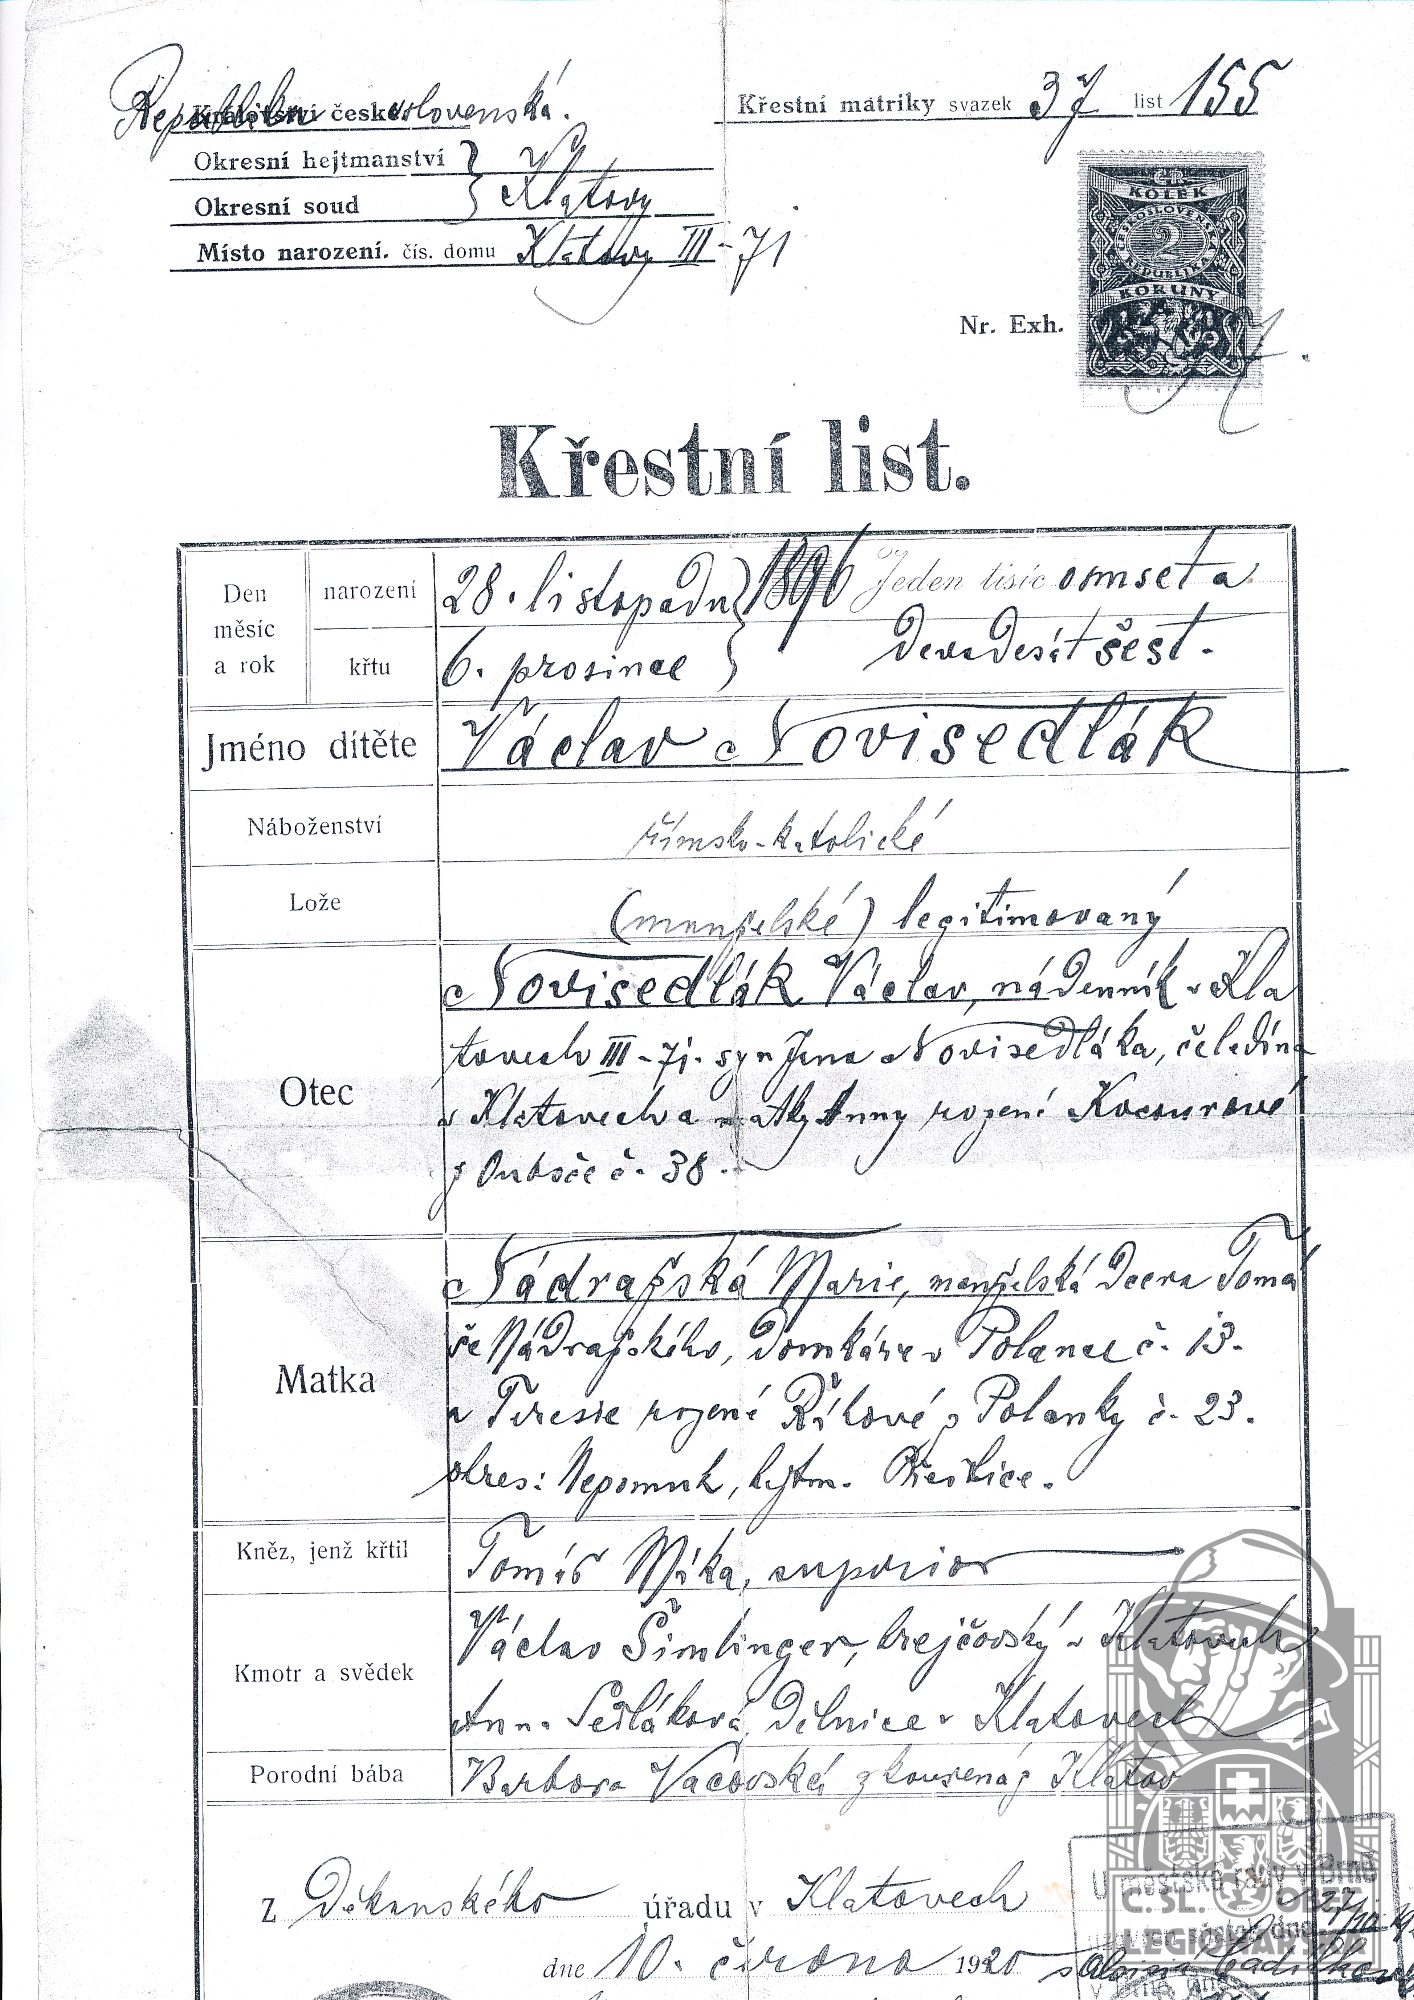 Republika Království české slovenská.
Křestní matriky svazek 37 list 155
Okresní hejtmanství } Klatovy
Okresní soud
Místo narození. čís. domu Klatovy III - 71
KOLEK
ČESKOSLOVENSKÁ
2
REPUBLIKA
KORUNY
Nr. Exh.
Křestní list.
Den měsíc a rok
narození 28. listopadu } 1896 Jeden tisíc osmset a
křtu 6. prosince devadesát šest.
Jméno dítěte Václav Novisedlák
Náboženství římsko-katolické
Lože (manželské) legitimovaný
Otec
Novisedlák Václav, nádenník v Kla
tovech III - 71. syn Jana Novisedláka, čeledína
v Klatovech a matky Anny rozené Kocourové
z č. 38.
Matka
Nádražská Marie, manželská dcera Tomá
še Nádražského, domkáře v Polance č. 13.
a Terezie rozené z Polanky č. 23.
okres: Nepomuk, hejtm. Přeštice.
Kněz, jenž křtil Tomáš Máka, superior
Kmotr a svědek
Václav Šimlinger, krejčovský v Klatovech
Anna Sedláková, dělnice v Klatovech
Porodní bába Barbora Vacovská zkoušená z Klatov
Z Děkanského úřadu v Klatovech
dne 10. června 1920
U městské rady v Brně
dne 27/10
Č.SL. OBEC
LEGIONÁŘSKÁ